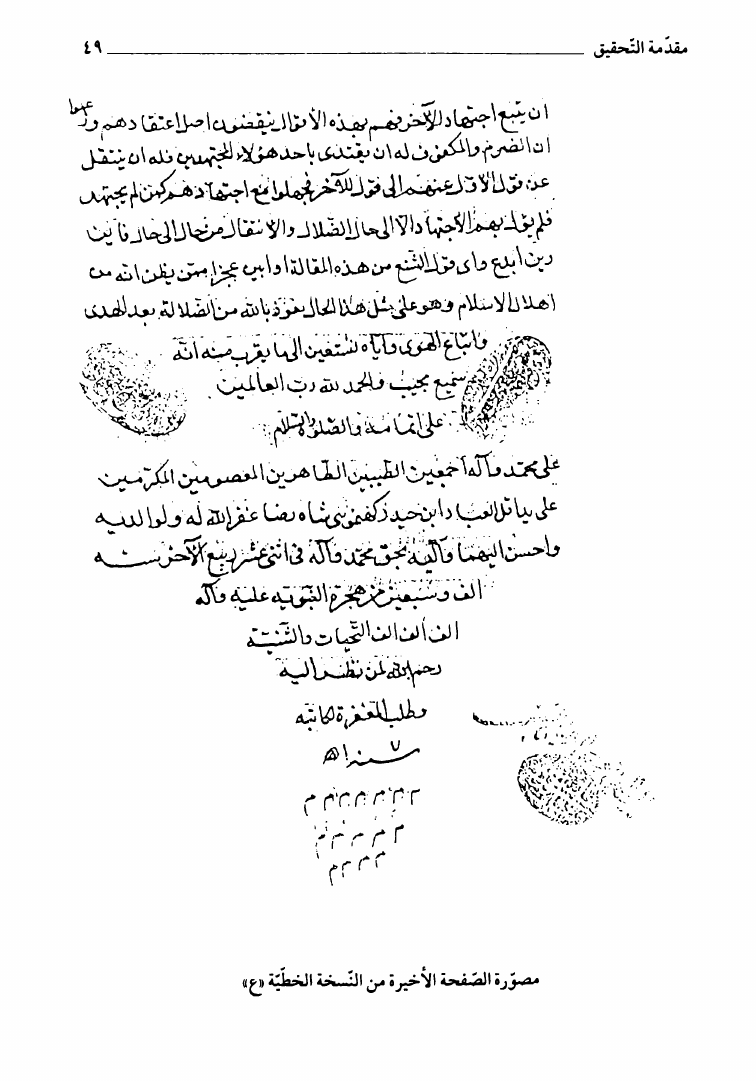 مقدّمة التّحقيق ٤٩
ان يتبع اجتهاد الآخر فهم بهذه الأقوال ينقضون اصل اعتقادهم
ان الضرير والمكفوف له ان يقتدى باحد هؤلاء المجتهدين فله ان ينتقل
عن قول الاول عنهم الى قول الآخر فجعلوا مع اجتهادهم كمن لم يجتهد
فلم يؤل بهم الاجتهاد الا الى حال الضلال والانتقال من حال الى حال فاين
دين ابدع واى قول اشنع من هذه المقالة او ابين عجزا ممن يظن انه من
اهل الاسلام وهو على مثل هذا الحال نعوذ بالله من الضلالة بعد الهدى
واتباع الهوى واياه نستعين الى ما يقرب منه انه
سميع مجيب والحمد لله رب العالمين
على اتمامه والصلوة والسلام
على محمد وآله اجمعين الطيبين الطاهرين المعصومين المكرمين
على يد اقل العباد ابن حيدر شاه رضا غفر الله له ولوالديه
واحسن اليهما واليه بحق محمد وآله فى اثنى عشر ربيع الآخر سنه
الف وسبعين من هجرة النبوية عليه وآله
الف الف الف التحيات والثنية
رحم الله لمن نظر اليه
وطلب المغفرة لكاتبه
م م م م م م م
م م م م م
م م م م
مصوّرة الصّفحة الأخيرة من النّسخة الخطّيّة «ع»